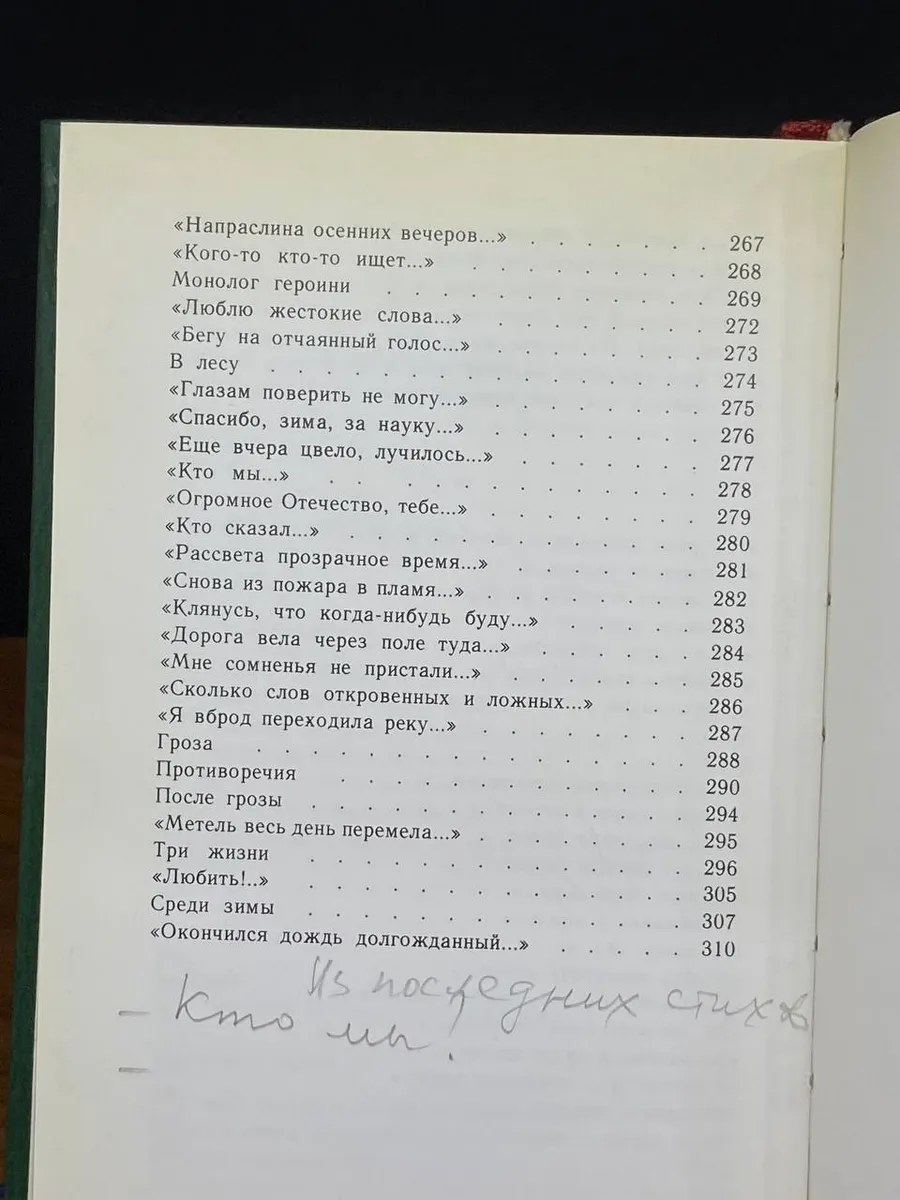 «Напраслина осенних вечеров...» . . . . . . . 267
«Кого-то кто-то ищет...» . . . . . . . . . 268
Монолог героини . . . . . . . . . . . . 269
«Люблю жестокие слова...» . . . . . . . . . 272
«Бегу на отчаянный голос...» . . . . . . . . 273
В лесу . . . . . . . . . . . . . . . . 274
«Глазам поверить не могу...» . . . . . . . . 275
«Спасибо, зима, за науку...» . . . . . . . . 276
«Еще вчера цвело, лучилось...» . . . . . . . 277
«Кто мы...» . . . . . . . . . . . . . . 278
«Огромное Отечество, тебе...» . . . . . . . . 279
«Кто сказал...» . . . . . . . . . . . . . 280
«Рассвета прозрачное время...» . . . . . . . 281
«Снова из пожара в пламя...» . . . . . . . . 282
«Клянусь, что когда-нибудь буду...» . . . . . 283
«Дорога вела через поле туда...» . . . . . . 284
«Мне сомненья не пристали...» . . . . . . . 285
«Сколько слов откровенных и ложных...» . . . 286
«Я вброд переходила реку...» . . . . . . . . 287
Гроза . . . . . . . . . . . . . . . . 288
Противоречия . . . . . . . . . . . . . 290
После грозы . . . . . . . . . . . . . . 294
«Метель весь день перемела...» . . . . . . . 295
Три жизни . . . . . . . . . . . . . . 296
«Любить!..» . . . . . . . . . . . . . . 305
Среди зимы . . . . . . . . . . . . . . 307
«Окончился дождь долгожданный...» . . . . . 310
Из последних стихов
– Кто мы!
–